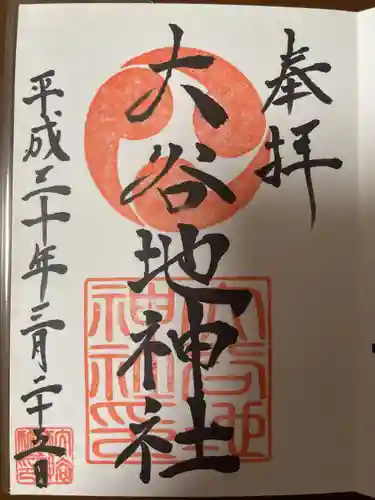 奉拝
大谷地神社
平成三十年三月二十五日
大谷地神社印